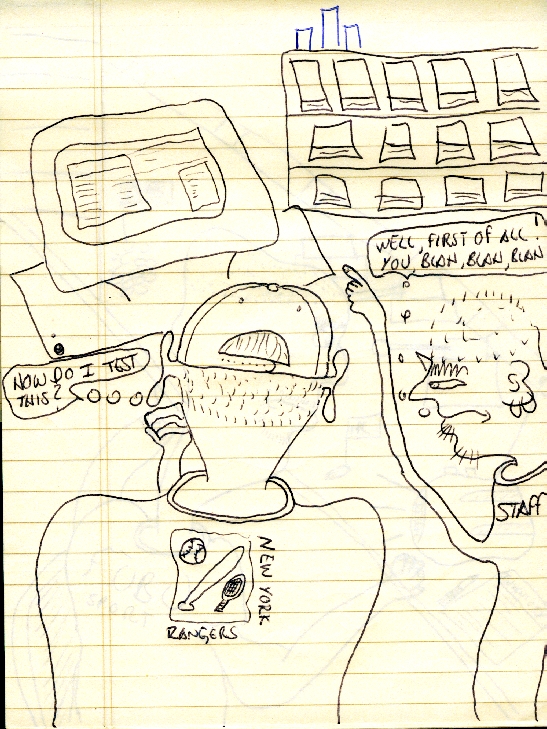 WELL, FIRST OF ALL.
YOU BLAH, BLAH, BLAH
HOW DO I TEST
THIS?
STAFF
NEW YORK
RANGERS